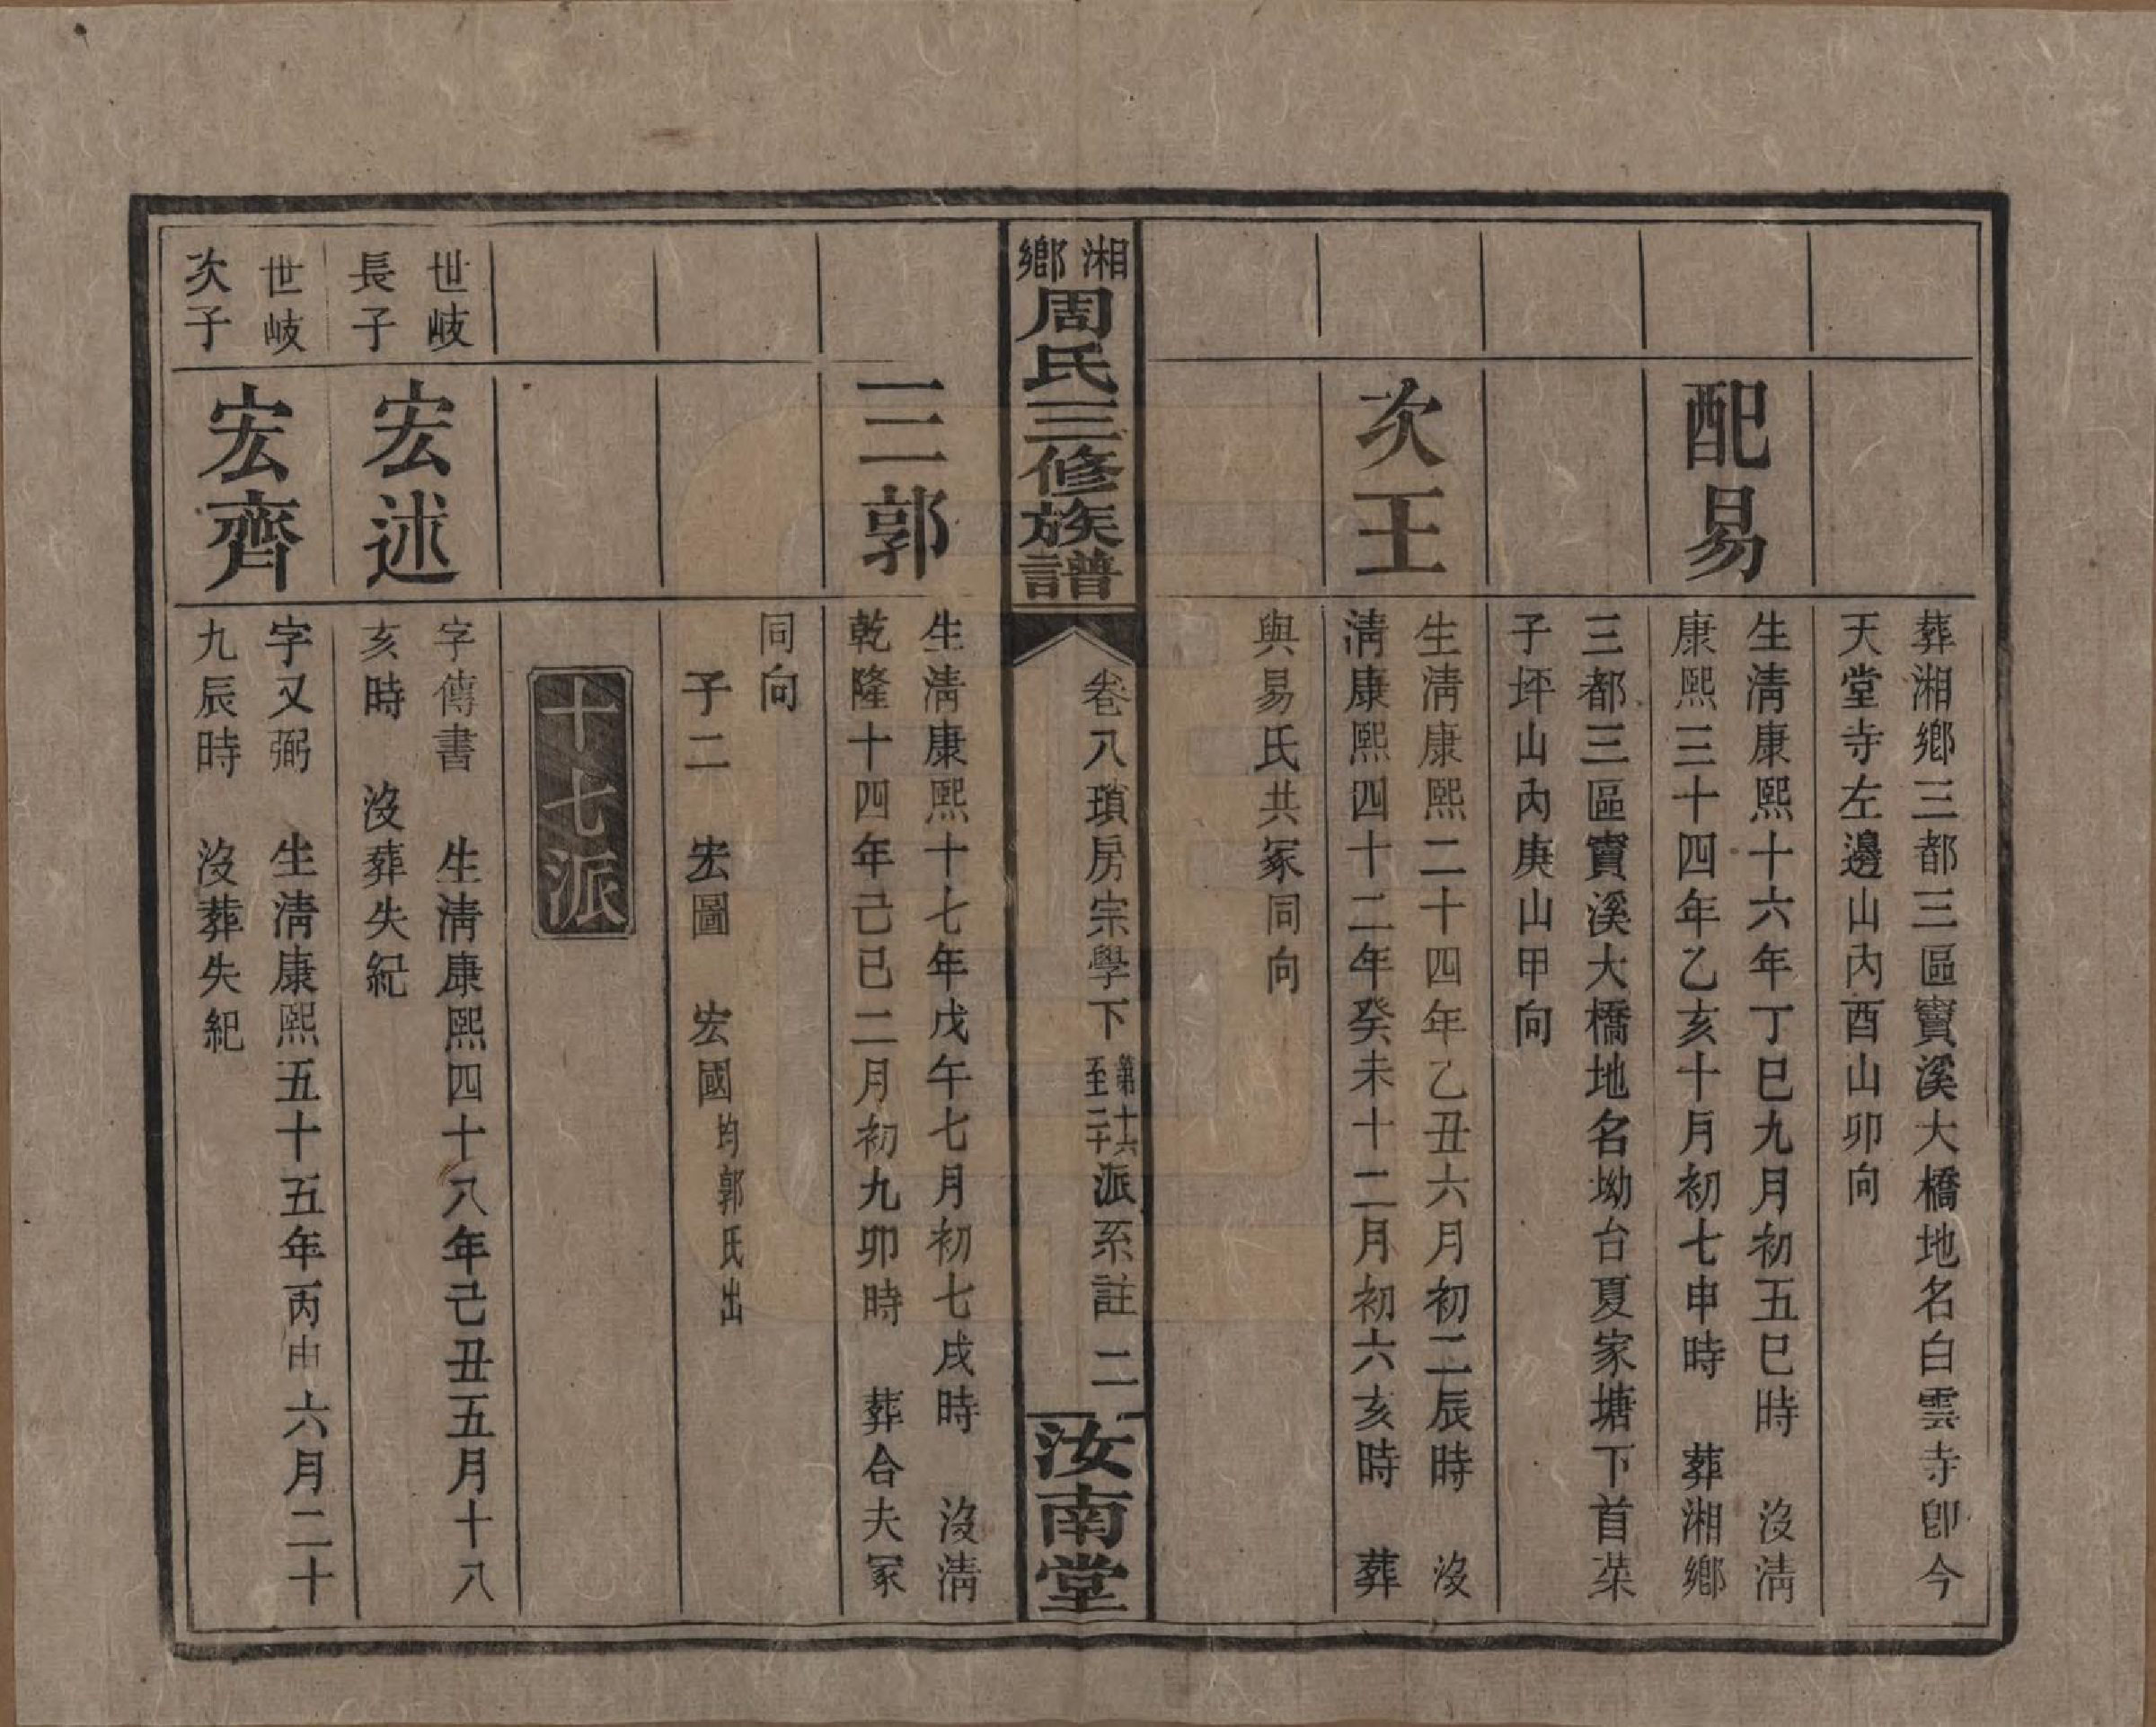 葬湘鄉三都三區竇溪大橋地名白雲寺卽今
天堂寺左邊山內酉山卯向
配易
生淸康熙十六年丁巳九月初五巳時　沒淸
康熙三十四年乙亥十月初七申時　葬湘鄉
三都三區竇溪大橋地名坳台夏家塘下首菜
子坪山內庚山甲向
次王
生淸康熙二十四年乙丑六月初二辰時　沒
淸康熙四十二年癸未十二月初六亥時　葬
與易氏共冢同向
湘鄉周氏三修族譜
卷八瑣房宗學下第十六至二十派系註　二
汝南堂
三郭
生淸康熙十七年戊午七月初七戌時　沒淸
乾隆十四年己巳二月初九卯時　葬合夫冢
同向
子二　宏圖　宏國均郭氏出
十七派
世岐長子
宏述
字傳書　生淸康熙四十八年己丑五月十八
亥時　沒葬失紀
世岐次子
宏齊
字又弼　生淸康熙五十五年丙申六月二十
九辰時　沒葬失紀